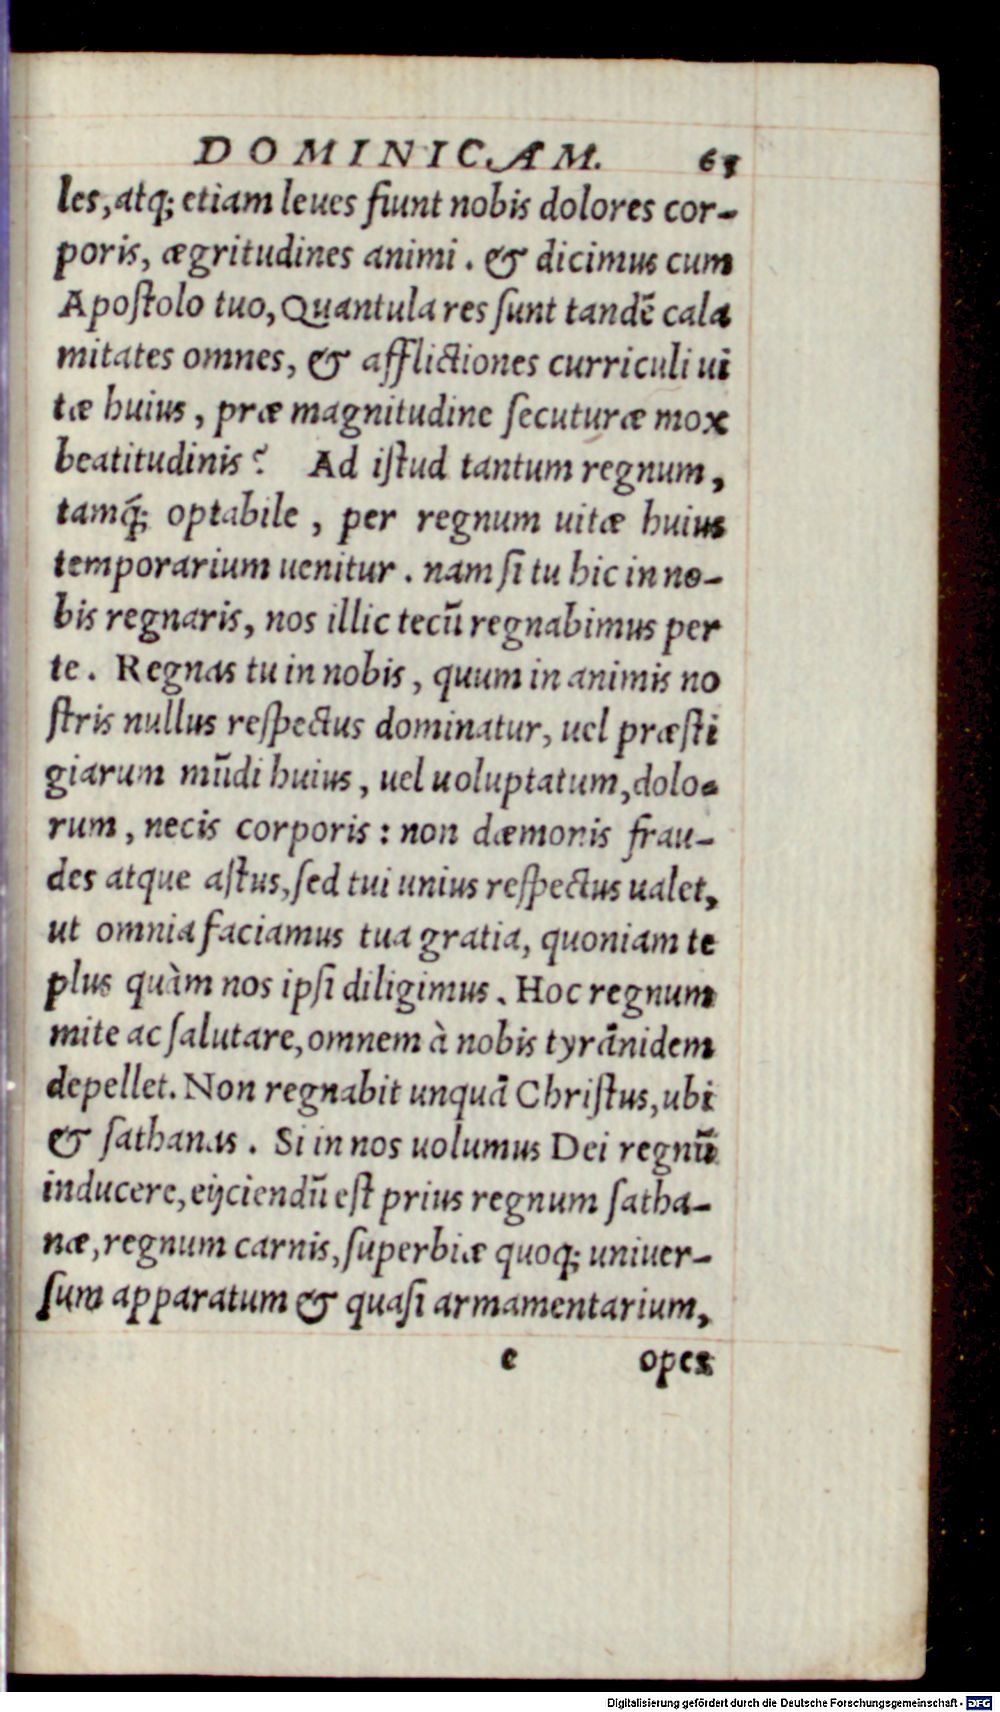 DOMINICAM. 65
les, atq; etiam leues fiunt nobis dolores cor-
poris, ægritudines animi. & dicimus cum
Apoſtolo tuo, Quantula res ſunt tandẽ cala
mitates omnes, & afflictiones curriculi ui
tæ huius, præ magnitudine ſecuturæ mox
beatitudinis? Ad iſtud tantum regnum,
tamq́; optabile, per regnum uitæ huius
temporarium uenitur. nam ſi tu hic in no-
bis regnaris, nos illic tecũ regnabimus per
te. Regnas tu in nobis, quum in animis no
ſtris nullus reſpectus dominatur, uel præſti
giarum mũdi huius, uel uoluptatum, dolo-
rum, necis corporis: non dæmonis frau-
des atque aſtus, ſed tui unius reſpectus ualet,
ut omnia faciamus tua gratia, quoniam te
plus quàm nos ipſi diligimus. Hoc regnum
mite ac ſalutare, omnem à nobis tyrãnidem
depellet. Non regnabit unquã Chriſtus, ubi
& ſathanas. Si in nos uolumus Dei regnũ
inducere, eijciendũ eſt prius regnum ſatha-
næ, regnum carnis, ſuperbiæ quoq; uniuer-
ſum apparatum & quaſi armamentarium,
e opes
Digitalisierung gefördert durch die Deutsche Forschungsgemeinschaft - DFG